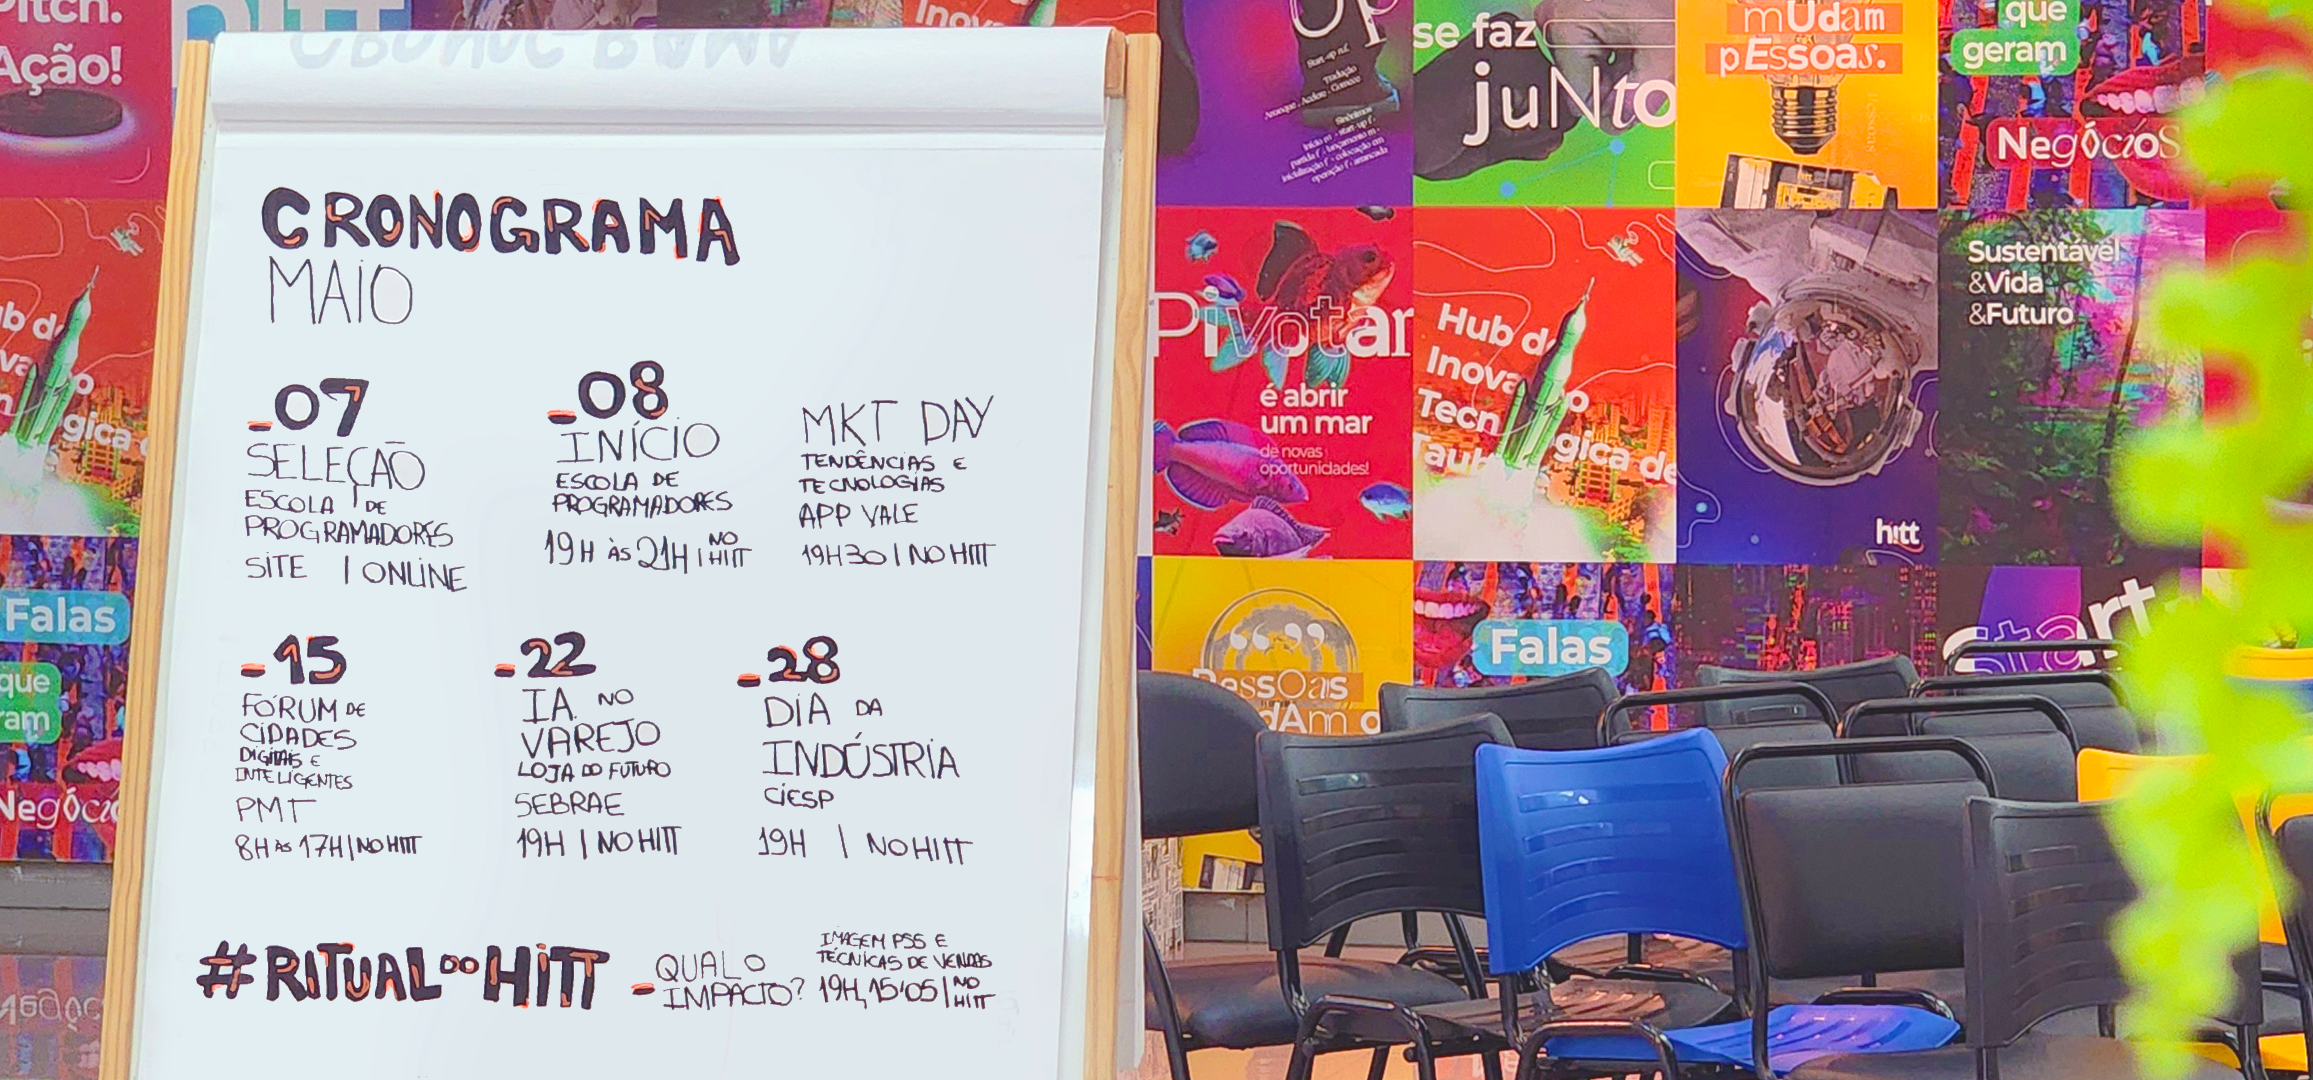 CRONOGRAMA
MAIO
_07
SELEÇÃO
ESCOLA DE
PROGRAMADORES
SITE | ONLINE
_08
INÍCIO
ESCOLA DE
PROGRAMADORES
19H ÀS 21H | NO HITT
MKT DAY
TENDÊNCIAS E
TECNOLOGIAS
APP VALE
19H30 | NO HITT
_15
FÓRUM DE
CIDADES
DIGITAIS E
INTELIGENTES
PMT
8H ÀS 17H | NO HITT
_22
IA NO
VAREJO
LOJA DO FUTURO
SEBRAE
19H | NO HITT
_28
DIA DA
INDÚSTRIA
CIESP
19H | NO HITT
#RITUAL DO HITT
_QUAL O
IMPACTO?
IMAGEM PSS E
TÉCNICAS DE VENDAS
19H, 15'05 | NO HITT
Pitch.
Ação!
hitt
Falas
que
Negóci
se faz
juNto
mUdam
pEssoas.
que
geram
NegócioS
Pivotar
é abrir
um mar
de novas
oportunidades!
Hub d
Inova
Tecn
gica de
Sustentável
&Vida
&Futuro
hitt
PessOas
dAm
Falas
Start